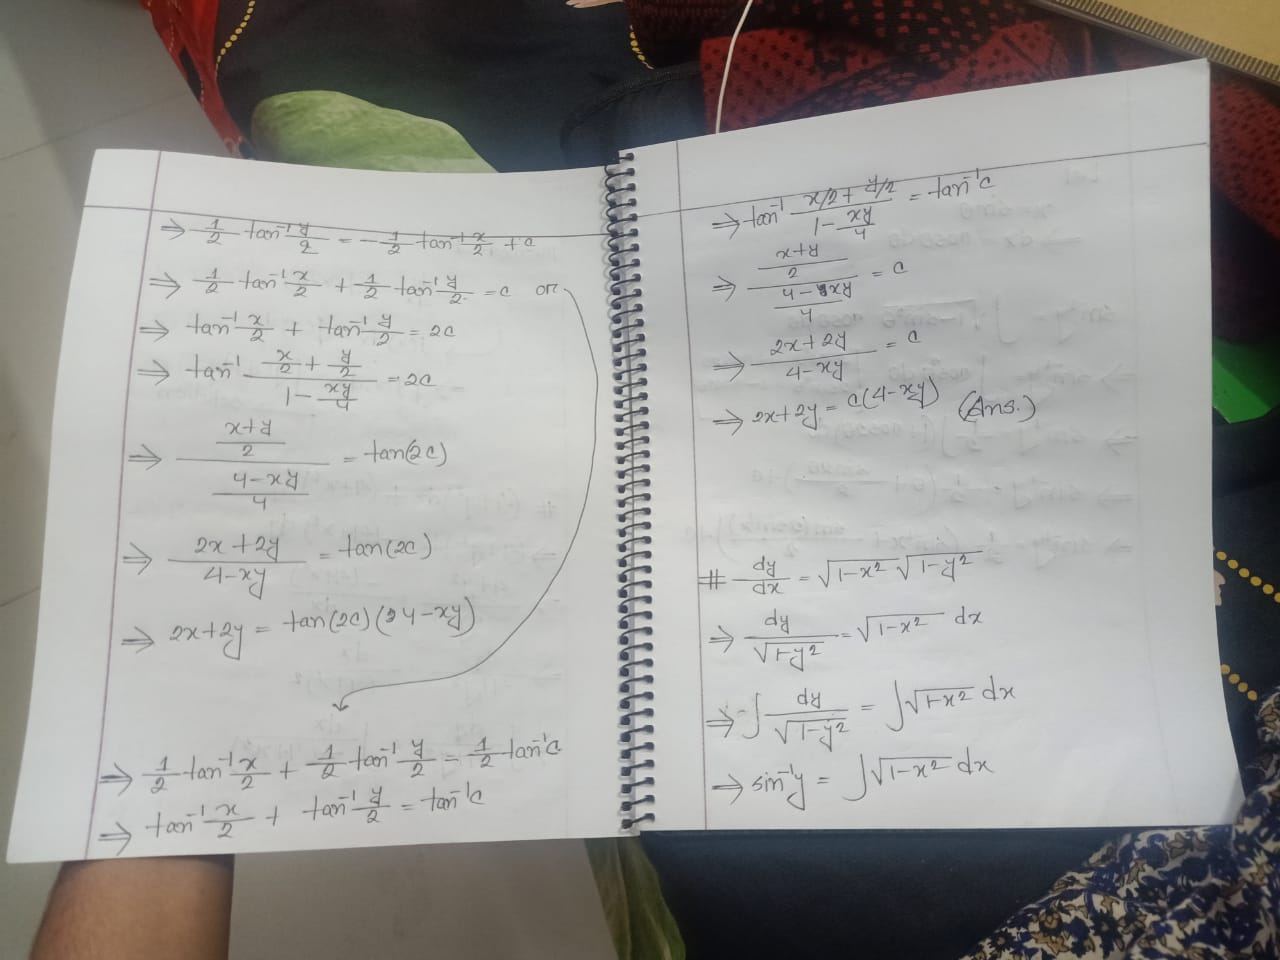 ⇒ 1/2 tan⁻¹ y/2 = - 1/2 tan⁻¹ x/2 + c
⇒ 1/2 tan⁻¹ x/2 + 1/2 tan⁻¹ y/2 = c or
⇒ tan⁻¹ x/2 + tan⁻¹ y/2 = 2c
⇒ tan⁻¹ (x/2 + y/2)/(1 - xy/4) = 2c
⇒ ((x+y)/2)/((4-xy)/4) = tan(2c)
⇒ (2x+2y)/(4-xy) = tan(2c)
⇒ 2x+2y = tan(2c)(4-xy)
⇒ 1/2 tan⁻¹ x/2 + 1/2 tan⁻¹ y/2 = 1/2 tan⁻¹c
⇒ tan⁻¹ x/2 + tan⁻¹ y/2 = tan⁻¹c
⇒ tan⁻¹ (x/2 + y/2)/(1 - xy/4) = tan⁻¹c
⇒ ((x+y)/2)/((4-xy)/4) = c
⇒ (2x+2y)/(4-xy) = c
⇒ 2x+2y = c(4-xy) (Ans.)
# dy/dx = √(1-x²) √(1-y²)
⇒ dy/√(1-y²) = √(1-x²) dx
⇒ ∫ dy/√(1-y²) = ∫√(1-x²) dx
⇒ sin⁻¹y = ∫√(1-x²) dx